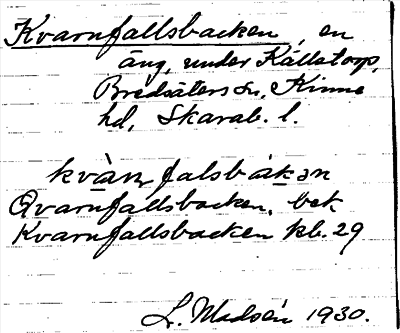 Kvarnfallsbacken, en
äng, under Källstorp,
Bredsäters sn, Kinne
hd, Skarab. l.
kvànfalsbákən
Qvarnfallsbacken, bek
Kvarnfallsbacken kb. 29
L. Madsén 1930.